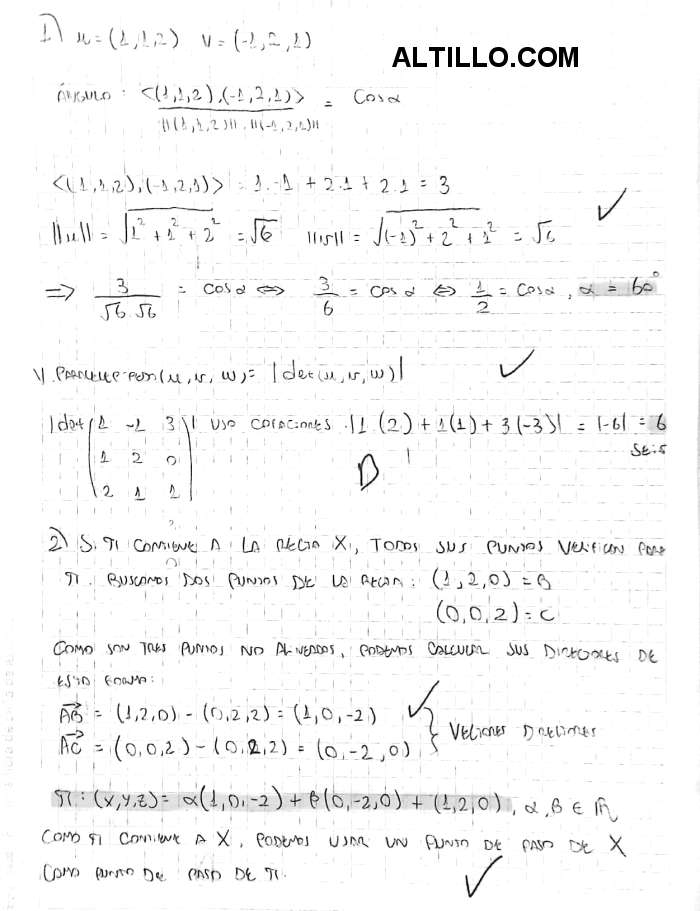 1) u = (1,1,2) v = (-1,2,1)
ALTILLO.COM
ÁNGULO: <(1,1,2),(-1,2,1)> / ||(1,1,2)||.||(-1,2,1)|| = cos α
<(1,1,2),(-1,2,1)> = 1.-1 + 2.1 + 2.1 = 3
||u|| = √(1² + 1² + 2²) = √6 ||v|| = √((-1)² + 2² + 1²) = √6
⇒ 3/(√6 √6) = cos α ⇔ 3/6 = cos α ⇔ 1/2 = cos α, α = 60°
(u, v, w) = |det(u,v,w)|
|det(1 -1 3| uso 1(2) + 1(1) + 3(-3)| = |-6| = 6
1 2 0
seis
2 1 1)
B
2) Si π contiene a la recta X, todos sus puntos verifican para
π. Buscamos dos puntos de la recta: (1,2,0) = B
(0,0,2) = C
Como son tres puntos no alineados, podemos calcular sus directores de
esta forma:
AB = (1,2,0) - (0,2,2) = (1,0,-2)
AC = (0,0,2) - (0,2,2) = (0,-2,0)
Vectores directores
π: (x,y,z) = α(1,0,-2) + β(0,-2,0) + (1,2,0), α,β ∈ ℝ
Como π contiene a X, podemos usar un punto de paso de X
como punto de paso de π.